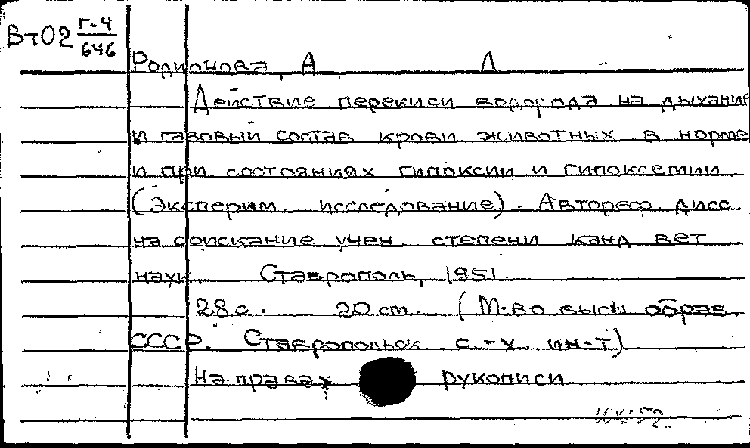 Вт02 Г-4/646
Родионова, А Л
Действие перекиси водорода на дыхание
и газовый состав крови животных в норме
и при состояниях гипоксии и гипоксемии.
(Эксперим. исследование). Автореф. дисс.
на соискание учен. степени канд вет
наук. Ставрополь, 1951.
28 с. 20 см. (М-во высш образ
СССР. Ставропольск с.-х. ин-т)
На правах рукописи